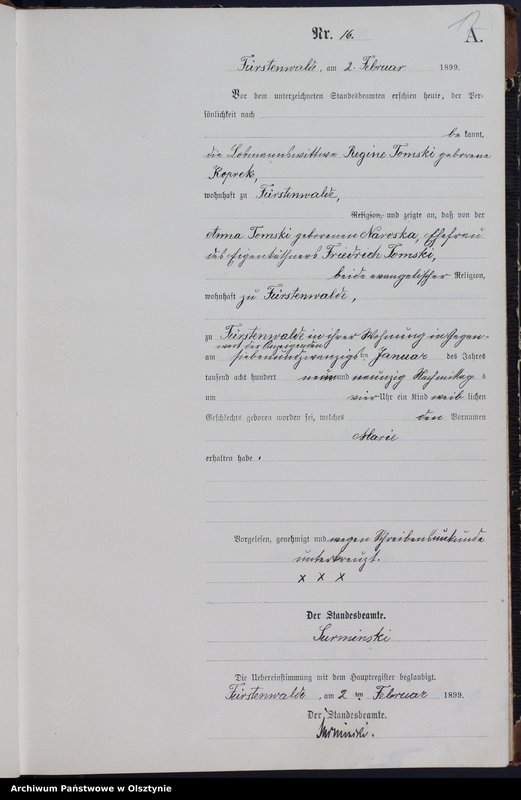 17
Nr. 16.
A.
Fürstenwalde, am 2. Februar 1899.
Vor dem unterzeichneten Standesbeamten erschien heute, der Per-
sönlichkeit nach
bekannt,
die Losmannswittwe Regine Tomski geborene
Koprek,
wohnhaft zu Fürstenwalde,
Religion, und zeigte an, daß von der
Anna Tomski geborenen Naroska, Ehefrau
des Eigenthümers Friedrich Tomski,
beide evangelischer Religion,
wohnhaft zu Fürstenwalde,
zu Fürstenwalde in ihrer Wohnung in Gegen-
wart der Anzeigenden
am siebenundzwanzigsten Januar des Jahres
tausend acht hundert neun und neunzig Nachmittags
um vier Uhr ein Kind weiblichen
Geschlechts geboren worden sei, welches den Vornamen
Marie
erhalten habe.
Vorgelesen, genehmigt und wegen Schreibensunkunde
unterkreuzt.
x x x
Der Standesbeamte.
Surminski
Die Uebereinstimmung mit dem Hauptregister beglaubigt.
Fürstenwalde, am 2ten Februar 1899.
Der Standesbeamte.
Surminski.
Archiwum Państwowe w Olsztynie